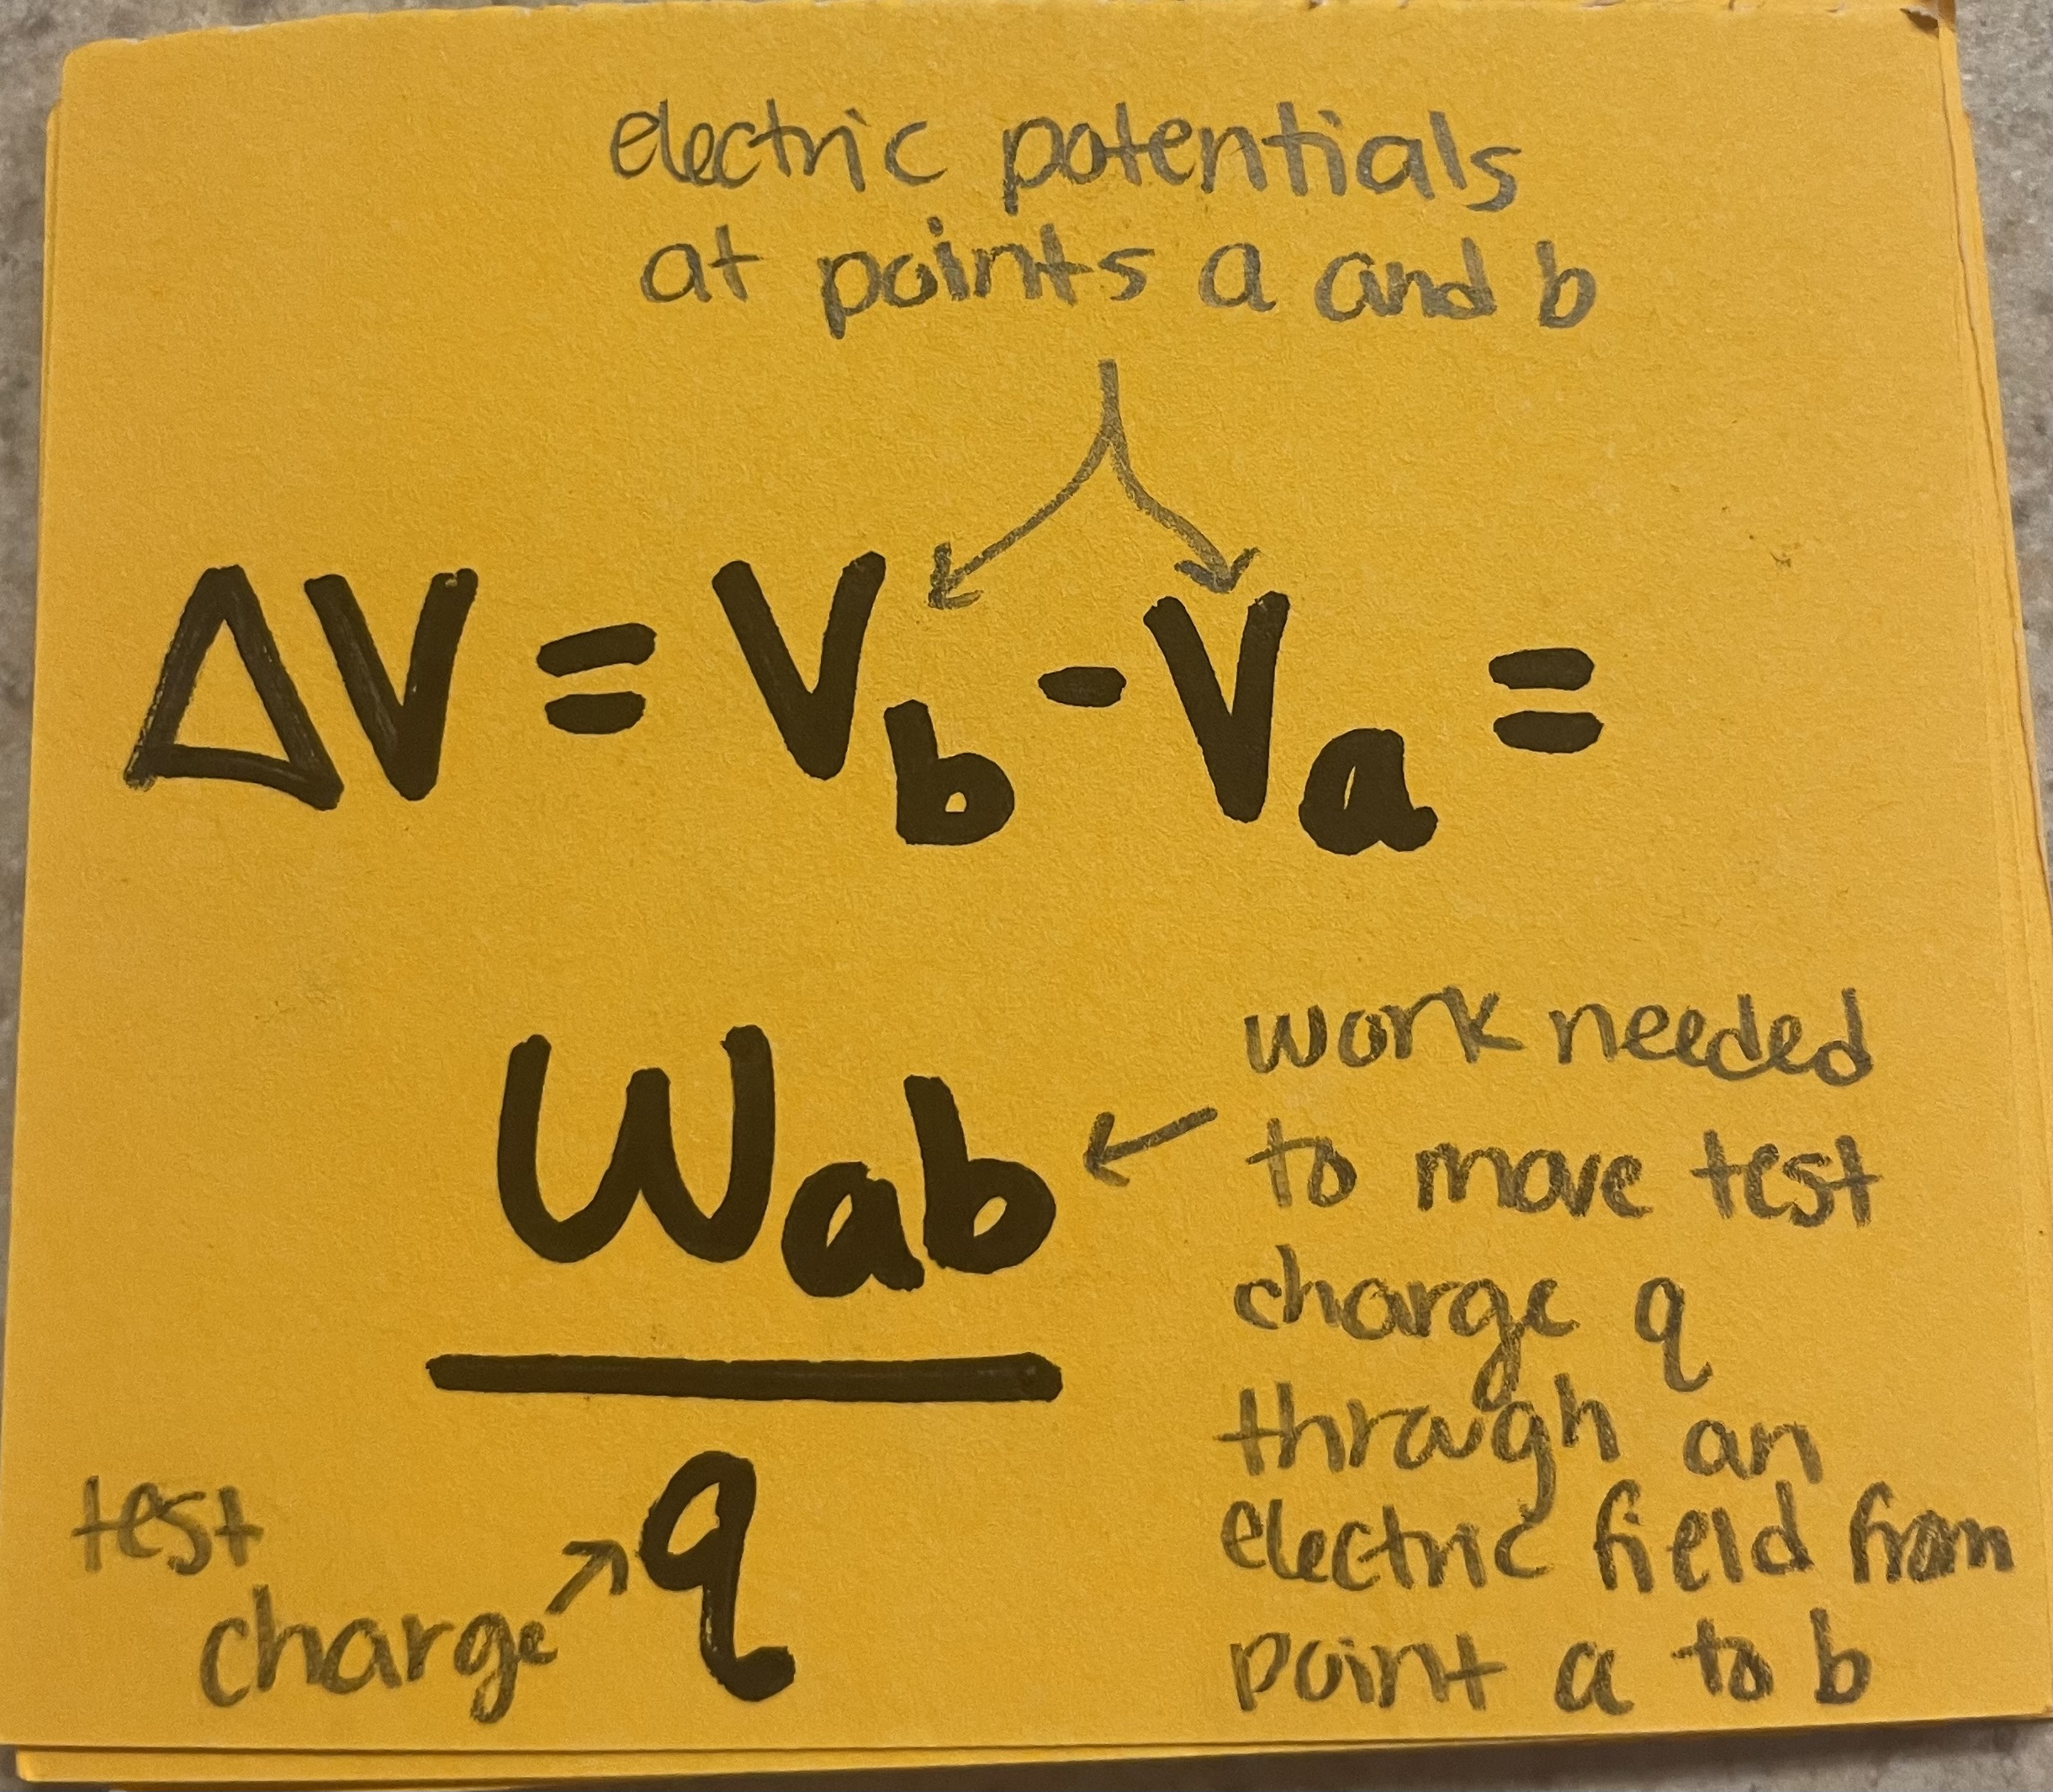 electric potentials
at points a and b
ΔV = Vb - Va =
Wab
work needed
to move test
charge q
through an
electric field from
point a to b
q
test
charge